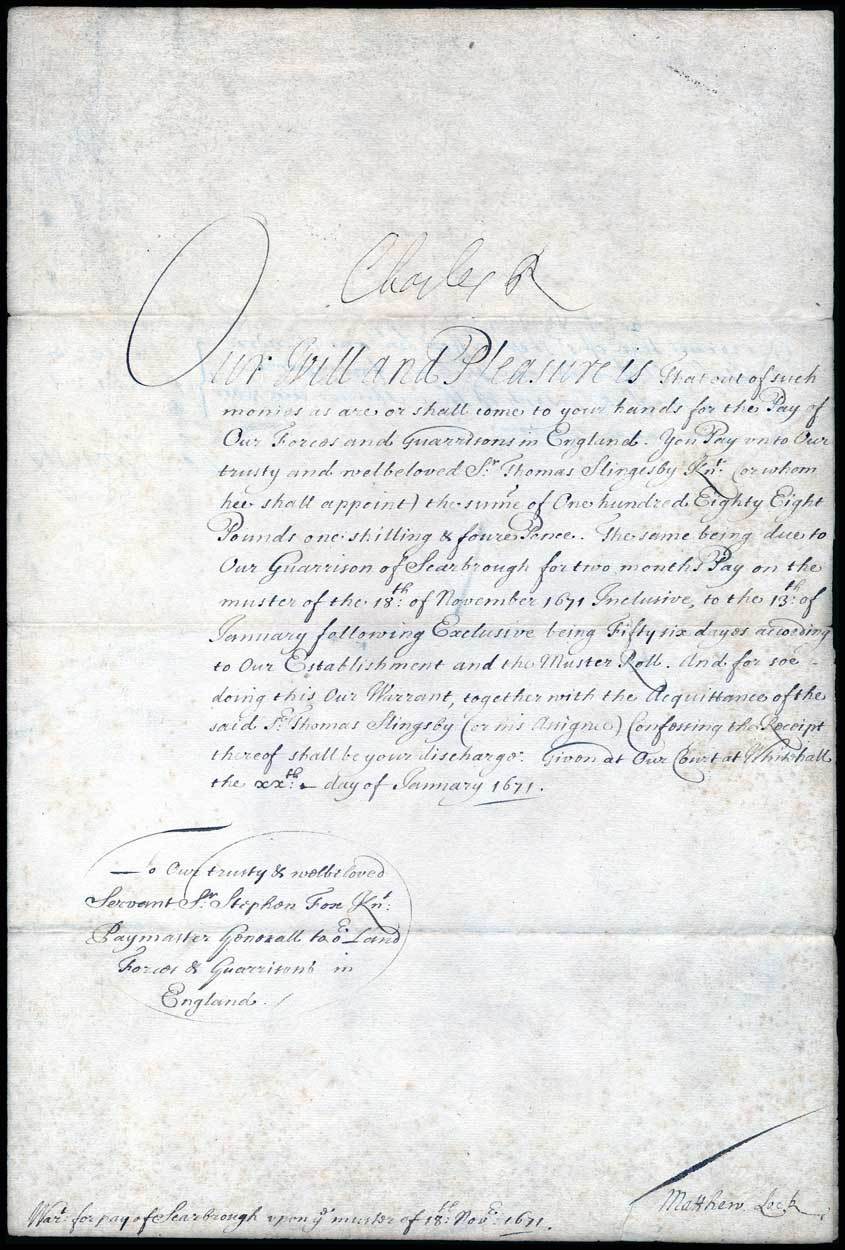 Charles R
Our Will and Pleasure is That out of such
monies as are or shall come to your hands for the Pay of
Our Forces and Guarrisons in England. You Pay vnto Our
trusty and welbeloved Sr. Thomas Slingesby Knt. (or whom
hee shall appoint) the sume of One hundred Eighty Eight
Pounds one shilling & foure Pence. The same being due to
Our Guarrison of Scarbrough for two months Pay on the
muster of the 18th. of November 1671 Inclusive, to the 13th. of
January following Exclusive being Fifty six dayes according
to Our Establishment and the Muster Roll. And for soe
doing this Our Warrant, together with the Acquittance of the
said Sr. Thomas Slingsby (or his Assigne) Confessing the Receipt
thereof shall be your discharge. Given at Our Court at Whitehall
the xxth. day of January 1671.
To Our trusty & welbeloved
Servant Sr. Stephen Fox Knt.
Paymaster Generall to or. Land
Forces & Guarrisons in
England.
Matthew Lock
Warr. for pay of Scarbrough upon ye muster of 18th. Novr. 1671.